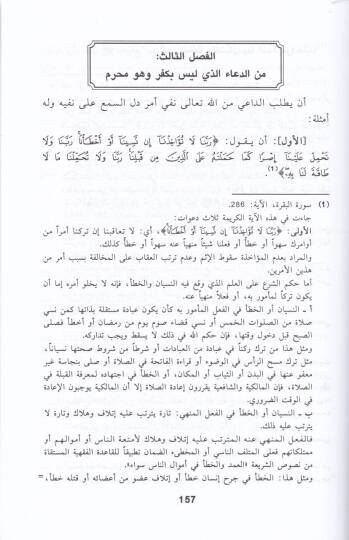 الفصل الثالث:
من الدعاء الذي ليس بكفر وهو محرم
أن يطلب الداعي من الله تعالى نفي أمر دل السمع على نفيه وله
أمثلة:
[الأول]: أن يقول: ﴿رَبَّنَا لَا تُؤَاخِذْنَا إِن نَّسِينَا أَوْ أَخْطَأْنَا رَبَّنَا وَلَا
تَحْمِلْ عَلَيْنَا إِصْرًا كَمَا حَمَلْتَهُ عَلَى الَّذِينَ مِن قَبْلِنَا رَبَّنَا وَلَا تُحَمِّلْنَا مَا لَا
طَاقَةَ لَنَا بِهِ﴾(1).
(1) سورة البقرة، الآية: 286.
جاءت في هذه الآية الكريمة ثلاث دعوات:
الأولى: ﴿رَبَّنَا لَا تُؤَاخِذْنَا إِن نَّسِينَا أَوْ أَخْطَأْنَا﴾، أي: لا تعاقبنا إن تركنا أمراً من
أوامرك سهواً أو خطأ أو فعلنا شيئاً منهياً عنه سهواً أو خطأ كذلك.
والمراد بعدم المؤاخذة سقوط الإثم وعدم ترتب العقاب على المخالفة بسبب أمر من
هذين الأمرين.
أما حكم الشرع على العلم الذي وقع فيه النسيان والخطأ، فإنه لا يخلو أمره إما أن
يكون تركاً لمأمور به، أو فعلاً منهياً عنه.
أ ـ النسيان أو الخطأ في الفعل المأمور به كأن يكون عبادة مستقلة بذاتها كمن نسي
صلاة من الصلوات الخمس أو نسي قضاء صوم يوم من رمضان أو أخطأ فصلى
الصبح قبل دخول وقتها، فإن حكم الله في ذلك لا يسقط ويجب تداركه.
ومثل هذا من ترك ركناً في عبادة من العبادات أو شرطاً من شروط صحتها نسياناً،
مثل ترك مسح الرأس في الوضوء أو قراءة الفاتحة في الصلاة أو صلى بنجاسة غير
معفو عنها في البدن أو الثياب أو المكان، أو الخطأ في اجتهاده لمعرفة القبلة في
الصلاة، فإن المالكية والشافعية يقررون إعادة الصلاة إلا أن المالكية يوجبون الإعادة
في الوقت الضروري.
ب ـ النسيان أو الخطأ في الفعل المنهي: تارة يترتب عليه إتلاف وهلاك وتارة لا
يترتب عليه ذلك.
فالفعل المنهي عنه المترتب عليه إتلاف وهلاك لأمتعة الناس أو أموالهم أو
ممتلكاتهم فعلى المتلف الناسي أو المخطىء الضمان تطبيقاً للقاعدة الفقهية المستقاة
من نصوص الشريعة «العمد والخطأ في أموال الناس سواء».
ومثل هذا: الخطأ في جرح إنسان خطأ أو إتلاف عضو من أعضائه أو قتله خطأ، =
157